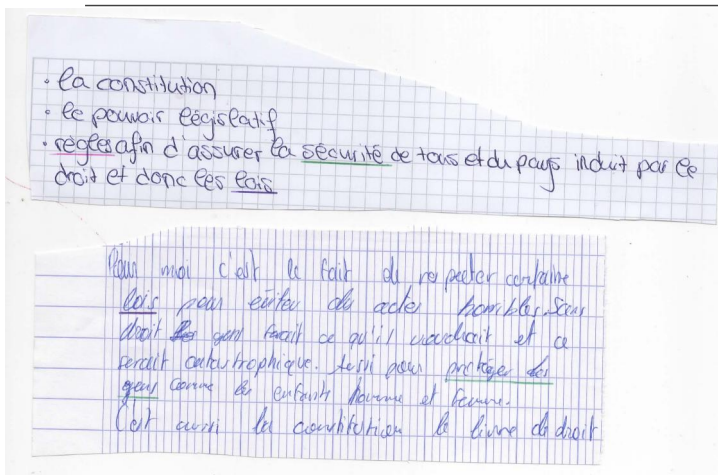 • la constitution
• le pouvoir législatif
• règles afin d'assurer la sécurité de tous et du pays induit par le
droit et donc les lois
Pour moi c'est le fait de respecter certaine
lois pour éviter des actes horribles. Sans
droit les gens ferait ce qu'il voudrait et ce
serait catastrophique. Aussi pour protéger des
gens comme les enfants homme et femme.
C'est aussi la constitution le livre de droit